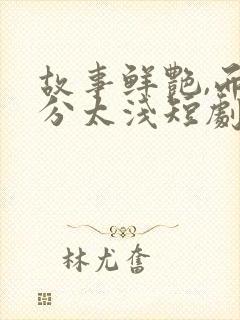 故事鲜艳,而缘
分太浅短劇
林尤奮